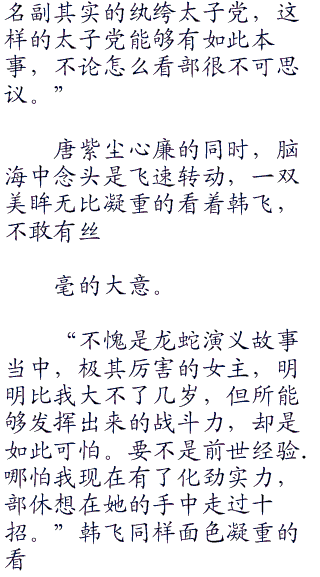 名副其实的纨绔太子党，这
样的太子党能够有如此本
事，不论怎么看部很不可思
议。”
唐紫尘心廉的同时，脑
海中念头是飞速转动，一双
美眸无比凝重的看着韩飞，
不敢有丝
毫的大意。
“不愧是龙蛇演义故事
当中，极其厉害的女主，明
明比我大不了几岁，但所能
够发挥出来的战斗力，却是
如此可怕。要不是前世经验.
哪怕我现在有了化劲实力，
部休想在她的手中走过十
招。”韩飞同样面色凝重的
看